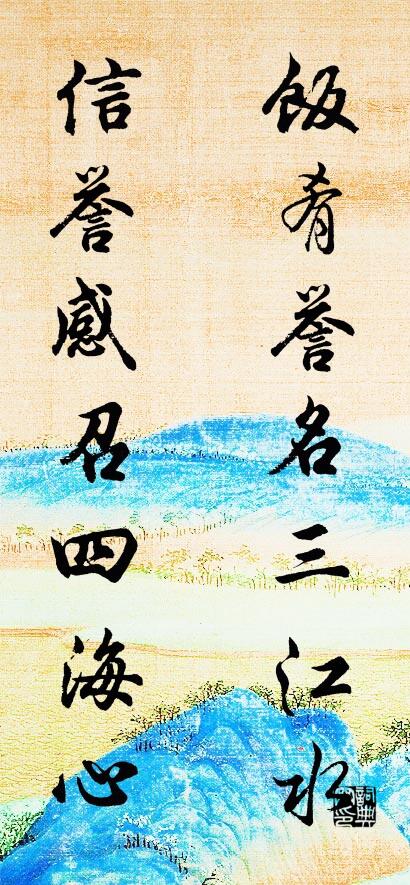 饭肴誉名三江水
信誉感召四海心